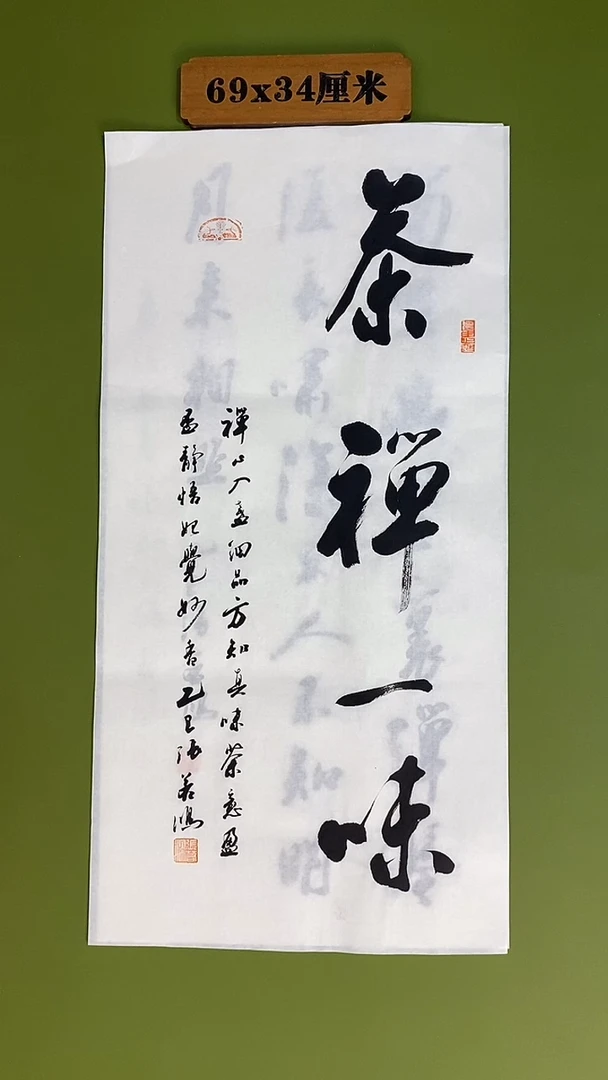 69x34厘米
茶禅一味
禅心入盏细品方知真味茶意盈
盏静悟始觉妙香乙巳张若鸿